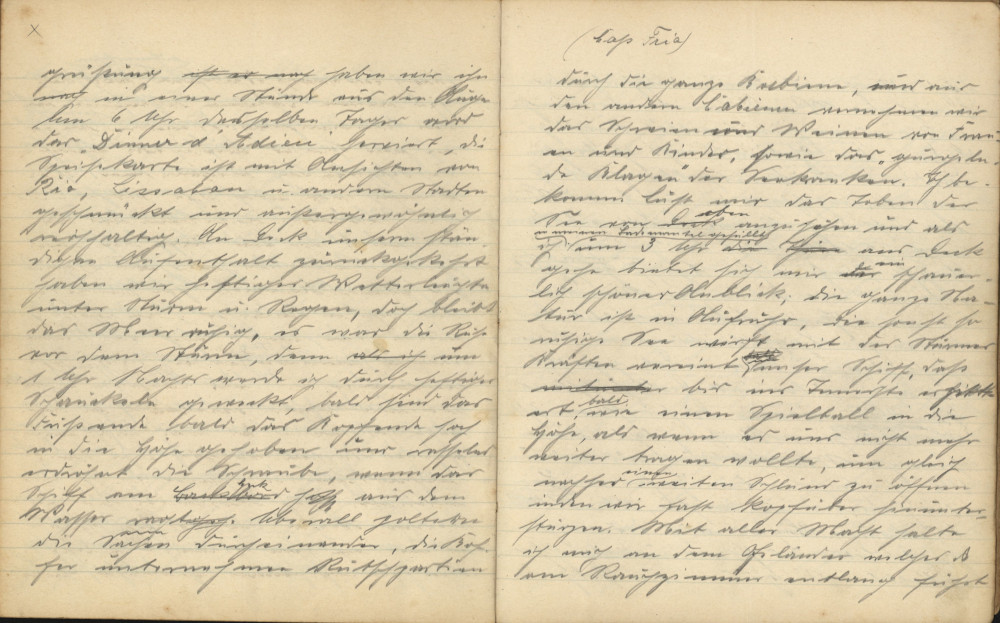 x
grüßung ist er noch haben wir ihn
noch in einer Stunde aus den Auge
Um 6 Uhr desselben Tages wird
das Dinner d'Adieu serviert, die
Speisekarte ist mit Ansichten von
Rio, Lissabon u andern Städten
geschmückt und außergewöhnlich
reichhaltig. An Deck unsern stän-
digen Aufenthalt zurückgekehrt
haben wir heftiges Wetterleuchten
unter Sturm u. Regen, doch bleibt
das Meer ruhig, es war die Ruhe
vor dem Sturm, denn als ich um
1 Uhr Nachts werde ich durch heftiges
Schaukeln geweckt, bald sind das
Fußende bald das Kopfende hoch
in die Höhe gehoben und rasselnd
erdröhnt die Schraube, wenn das
Schiff am Heck hoch aus dem
Wasser ragt. Überall poltern
die Sachen durcheinander, die Kof-
fer unternehmen Rutschpartien
(Cap Frio)
durch die ganze Kabine, und aus
den andern Cabienen vernehmen wir
das Schreien und Weinen von Frau
en und Kinder, sowie das gurgeln-
de Klagen der Seekranken. Ich be-
komme Lust mir das Toben der
See von oben anzusehen und als
ich um 3 Uhr die aus Deck
gehe bietet sich mir ein schauer-
lich schöner Anblick; die ganze Na-
tur ist in Aufruhr, die sonst so
ruhige See wirft mit des Sturmes
Kräften vereint unser Schiff, daß
bis ins Innerste erzittert
bald wie einen Spielball in die
Höhe, als wenn es uns nicht mehr
weiter tragen wollte, um gleich
nachher einen weiten Schlund zu öffnen
indem wir fast kopfüber hinunter-
stürzen. Mit aller Macht halte
ich mich an dem Geländer welches
am Rauchzimmer entlang führt